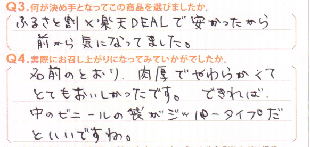 Q3.何が決め手となってこの商品を選びましたか。
ふるさと割×楽天DEALで安かったから
前から気になってました。
Q4.実際にお召し上がりになってみていかがでしたか。
名前のとおり、肉厚でやわらかくて
とてもおいしかったです。 できれば、
中のビニールの袋がジッパータイプだ
といいですね。